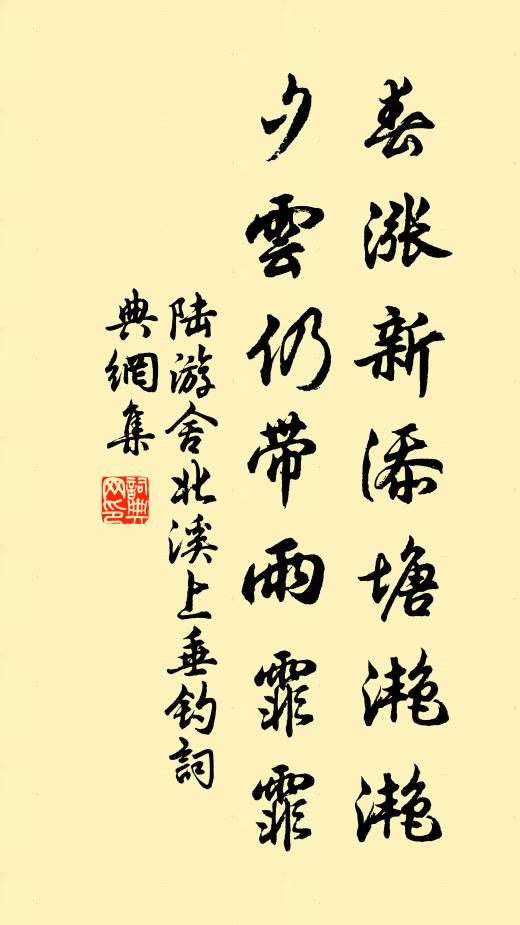 春漲新添塘灔灔
夕雲仍带雨霏霏
陆游舍北溪上垂钓詞
典網集
詞典网印